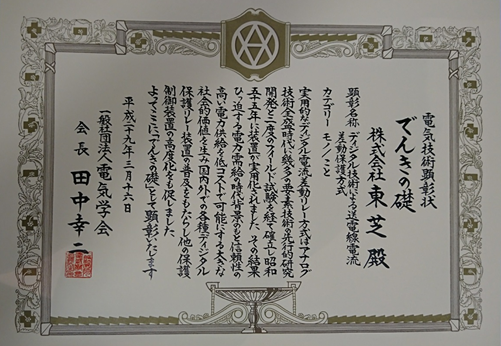 電気技術顕彰状
でんきの礎
株式会社 東芝 殿
顕彰名称 ディジタル技術による送電線電流
差動保護方式
カテゴリー モノ/こと
実用的なディジタル電流差動リレー方式はアナログ
技術全盛時代に幾多の要素技術の先行的研究
開発と二度のフィールド試験を経て確立し昭和
五十五年に装置が実用化されました。その結果
ひっ迫する電力需給の時代背景のもと信頼性の
高い電力供給を低コストで可能にする大きな
社会的価値を生み国内外での各種ディジタル
保護リレー装置の普及をもたらし他の保護
制御装置の高度化をも促しました。
よってここに「でんきの礎」として顕彰いたします
平成二十九年三月十六日
一般社団法人 電気学会
会長 田中幸二